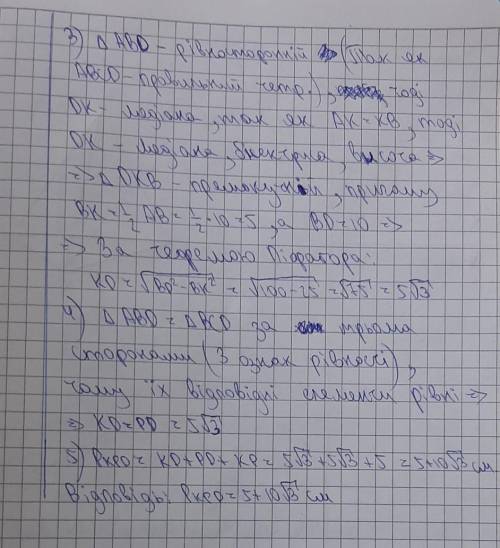 3) △ABD – рівносторонній (так як
ABCD – правильний тетр.), тоді
DK – медіана, так як AK = KB, тоді
DK – медіана, бісектриса, висота ⇒
⇒ △DKB – прямокутний, причому
BK = 1/2 AB = 1/2 · 10 = 5, а BD = 10 ⇒
⇒ За теоремою Піфагора:
KD = √(BD² - BK²) = √(100 - 25) = √75 = 5√3
4) △ABD = △BCD за трьома
сторонами (3 ознак рівності),
тому їх відповідні елементи рівні ⇒
⇒ KD = PD = 5√3
5) PKPD = KD + PD + KP = 5√3 + 5√3 + 5 = 5 + 10√3 см
Відповідь: PKPD = 5 + 10√3 см